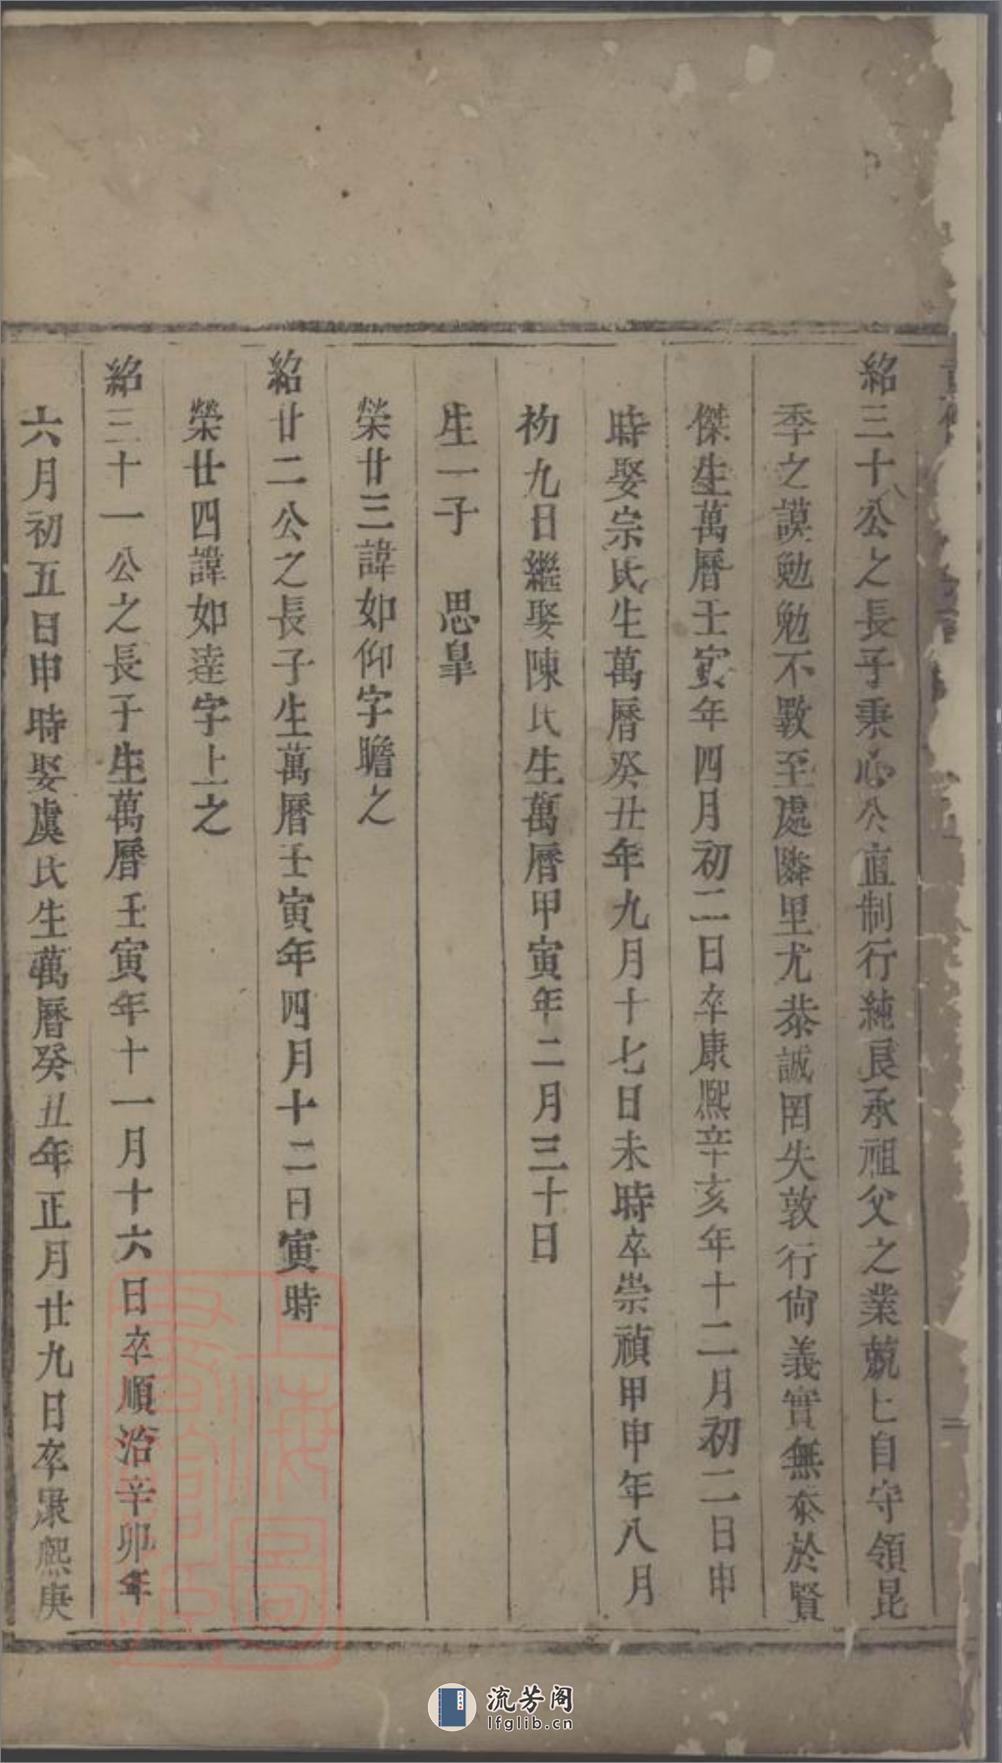 紹三十八公之長子秉心公直制行純良承祖父之業兢匕自守領昆
季之謨勉勉不斁至處隣里尤恭誠罔失敦行尙義實無忝於賢
傑生萬曆壬寅年四月初二日卒康熙辛亥年十二月初二日申
時娶宗氏生萬曆癸丑年九月十七日未時卒崇禎甲申年八月
初九日繼娶陳氏生萬曆甲寅年二月三十日
生一子 思皐
榮廿三諱如仰字瞻之
紹廿二公之長子生萬曆壬寅年四月十二日寅時
榮廿四諱如逵字上之
紹三十一公之長子生萬曆壬寅年十一月十六日卒順治辛卯年
六月初五日申時娶虞氏生萬曆癸丑年正月廿九日卒康熙庚
上海圖書館藏
流芳阁
lfglib.cn